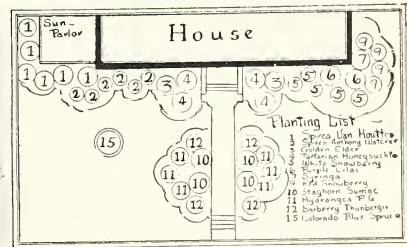 Sun-
Parlor
House
1
1
1 1 1 1 2 2 2 3 4
2 2 4
4 3 5 5 6 6 9
4 5 5 5 7 9 9
15
12
11 10
11 10
11 10
11 12
12
10 11
10 11
10 11
12
Planting List
1 Spirea Van Houttei
2 Spirea Anthony Waterer
3 Golden Elder
4 Tartarian Honeysuckle
5 White Snowberry
6 Purple Lilac
7 Syringa
9 Red Snowberry
10 Staghorn Sumac
11 Hydrangea P G
12 Barberry Thunbergii
15 Colorado Blue Spruce